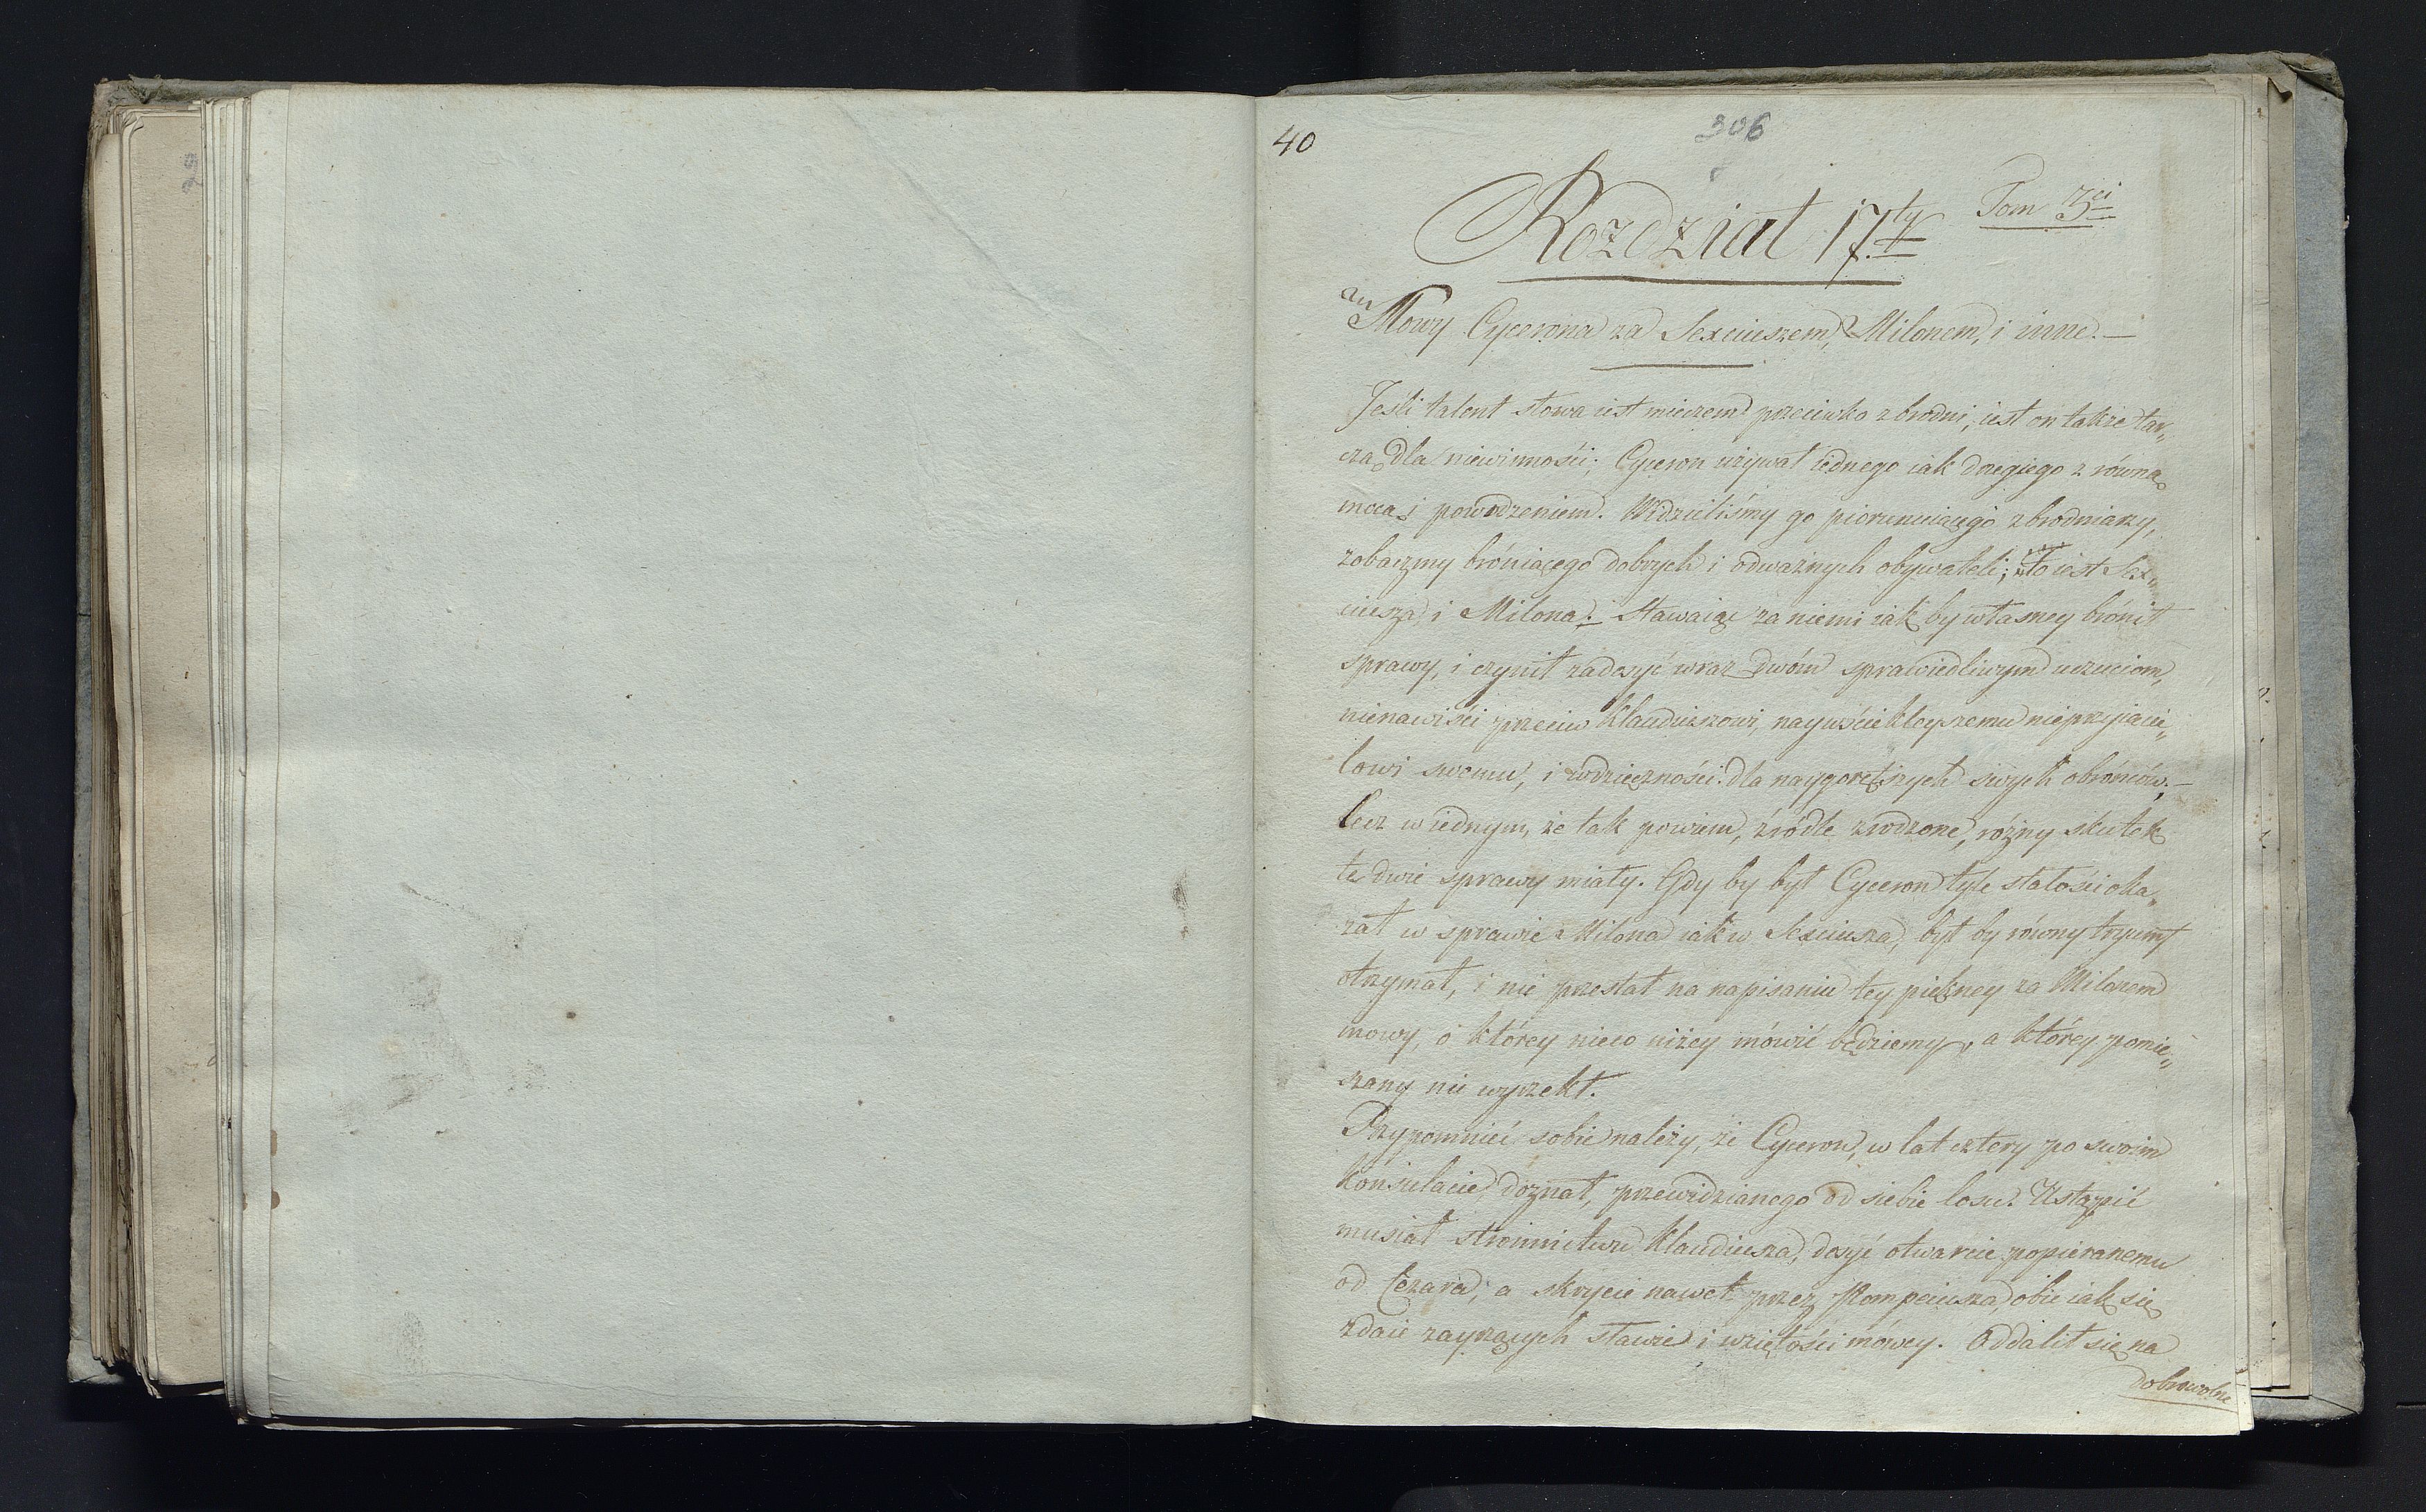 40
306
Rozdział 17ty
Tom 3ci
Mowy Cycerona za Sexciuszem, Milonem, i inne.—
Jeśli talent słowa iest mieczem przeciwko zbrodni, iest on także tar„
czą dla niewinności; Cyceron używał iednego iak drugiego z równą
mocą i powodzeniem. Widzieliśmy go piorunuiącego zbrodniarzy,
zobaczmy bróniącego dobrych i odważnych obywateli; to iest Sex„
ciusza i Milona. Stawaiąc za niemi iak by własney brónił
sprawy, i czynił zadosyć wraz dwóm sprawiedliwym uczuciom,
nienawiści przeciw Klaudiuszowi, naywścieklejszemu nieprzyiacie„
lowi swemu, i wdzięczności dla naygorętszych swych obrónców.—
lecz w iednym, że tak powiem, źródle zrodzone, różny skutek
te dwie sprawy miały. Gdy by był Cyceron tyle stałości oka„
zał w sprawie Milona iak w Sexciusza, był by równy tryumf
otrzymał, i nie przestał na napisaniu tey piękney za Milonem
mowy, o którey nieco niżey mówić będziemy, a którey pomie„
szany nie wyrzekł.
Przypomnieć sobie należy, że Cyceron, w lat cztery po swoim
Konsulacie, doznał, przewidzianego od siebie losu. Ustąpić
musiał stronnictwu Klaudiusza, dosyć otwarcie popieranemu
od Cezara, a skrycie nawet przez Pompeiusza, obie iak się
zdaie zayrzących sławie i wziętości mówcy. Oddalił się na
dobrowolne